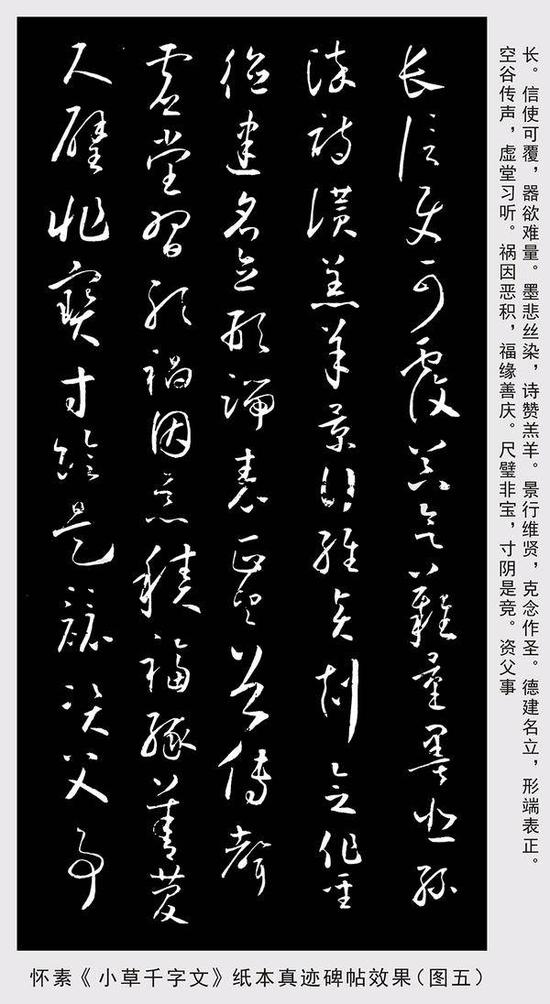 长。信使可覆，器欲难量。墨悲丝染，诗赞羔羊。景行维贤，克念作圣。德建名立，形端表正。
空谷传声，虚堂习听。祸因恶积，福缘善庆。尺璧非宝，寸阴是竞。资父事
長信使可覆器欲難量墨悲絲
染詩讚羔羊景行維賢剋念作聖
德建名立形端表正空谷傳聲
虛堂習聽禍因惡積福緣善慶
尺璧非寶寸陰是競資父事
怀素《小草千字文》纸本真迹碑帖效果（图五）